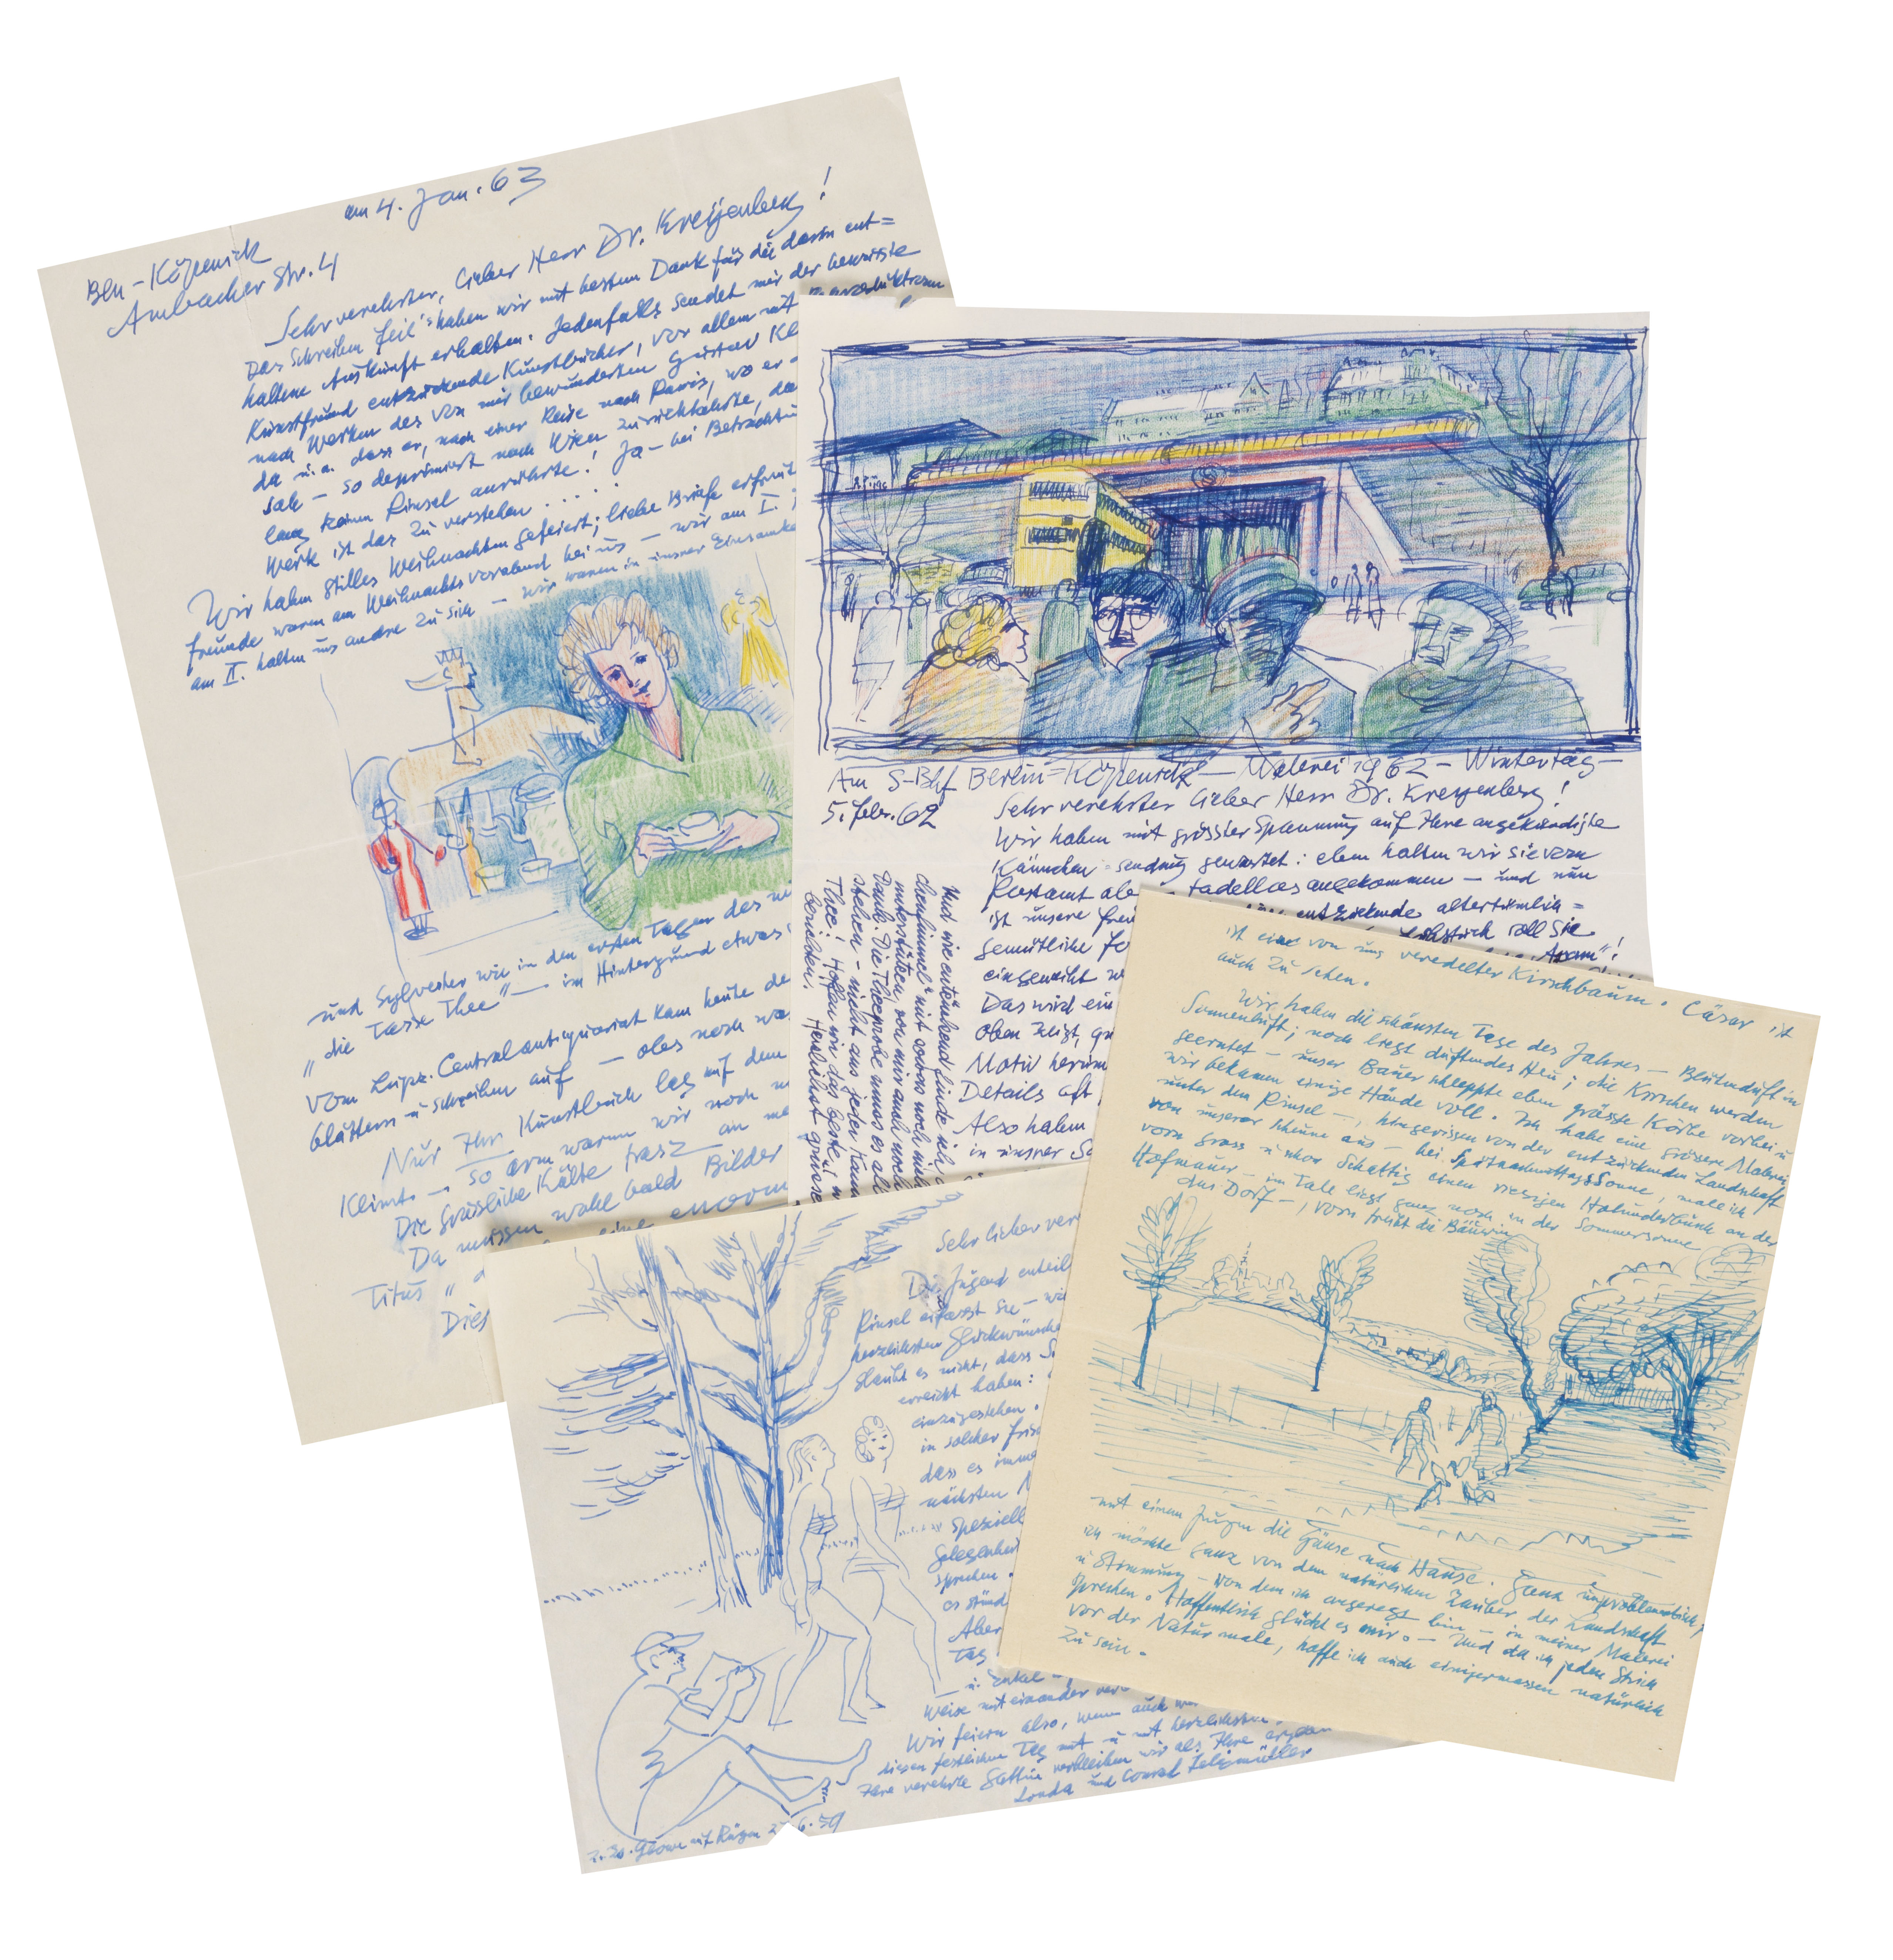 am 4. Jan. 63
Bln-Köpenick
Ambacher Str. 4
Sehr verehrter, lieber Herr Dr. Kreyenberg!
Das Schreiben haben wir mit bestem Dank für die darin ent=
haltene Auskunft erhalten. Jedenfalls sendet mir der bewusste
Kunstfreund entzückende Kunstbücher, vor allem mit
nach Werken des von mir bewunderten Gustav Kl
da u.a. dass er, nach einer Reise nach Paris, wo er
sah – so deprimiert nach Wien zurückkehrte, da
lang keinen Pinsel anrührte! Ja – bei Betrachtu
Werk ist das zu verstehen . . . .
Wir haben stilles Weihnachten gefeiert; liebe Briefe erfreut
freunde, waren am Weihnachtsvorabend bei uns – wir am I.
am II. halten uns andre zu sich – wir waren in unsrer Einsamke
und Sylvester wie in den ersten Tagen des n
„die Tasse Thee" – im Hintergrund etwas
vom Leipz. Centralantiquariat kam heute de
blättern u schreiben auf – alles noch wa
Nur Ihr Kunstbuch lag auf dem
Klimt – so arm waren wir noch n
Die grässliche Kälte frasz an me
Da müssen wohl bald Bilder
eine enorm
Titus „ d
Dies
Am S-Bhf Berlin=Köpenick – Malerei 1962 – Wintertag –
5. Febr. 62
Sehr verehrter lieber Herr Dr. Kreyenberg!
Wir haben mit grösster Spannung auf Ihre angekündigte
Kännchen-sendung gewartet: eben halten wir sie vom
Postamt ab tadellos angekommen – und nun
ist unsere Freu entzückende altertümlich=
gemütliche Fo soll sie
eingeweiht w
Das wird ein
oben zeigt, gu
Motiv herum
Details oft
Also haben
in unsrer So
Und wie entzückend finde ich
chenfimmel" mit etwas noch
unterstützen, von mir auch noch
Dank. Die Theeprobe muss es al
stehen – nicht aus jeder Kann
Thee! Hoffen wir das beste u. w
berichten. Herzlichst grüsse
ist eine von uns veredelter Kirschbaum. Cäsar ist
auch zu sehen.
Wir haben die schönsten Tage des Jahres – Blütenduft in
Sonnenluft; noch liegt duftendes Heu; die Kirschen werden
geerntet – unser Bauer schleppte eben grosse Körbe vorbei u
wir bekamen einige Hände voll. Ich habe eine grössere Malerei
unter dem Pinsel –, hingerissen von der entzückenden Landschaft
von unserer Scheune aus – bei SpätnachmittagsSonne, male ich
vorn gross u. schattig einen riesigen Holunderbusch an der
Hofmauer – im Tale liegt ganz noch in der Sommersonne
das Dorf –, vorn treibt die Bäuerin
mit einem Jungen die Gänse nach Hause. Ganz unproblematisch,
ich möchte ganz von dem natürlichen Zauber der Landschaft
u Stimmung – von dem ich angeregt bin – in meiner Malerei
sprechen. Hoffentlich glückt es mir. – Und da ich jeden Strich
vor der Natur male, hoffe ich auch einigermassen natürlich
zu sein.
Sehr lieber ver
Die Jugend enteil
Pinsel erfasst Sie – wi
herzlichsten Glückwünsche
glaubt es nicht, dass S
erreicht haben:
einzugestehen.
in solcher Fris
dass es imme
nächsten
speziell
Gelegenhei
sprechen.
es stünd
Aber
Tag
u. Enkel
Weise miteinander ver
Wir feiern also, wenn auch
diesen festlichen Tag mit u mit herzlichsten
Ihre verehrte Gattin verbleiben wir als Ihre ergeben
Londa und Conrad Felixmüller
z. Zt. Glowe auf Rügen 6. 59